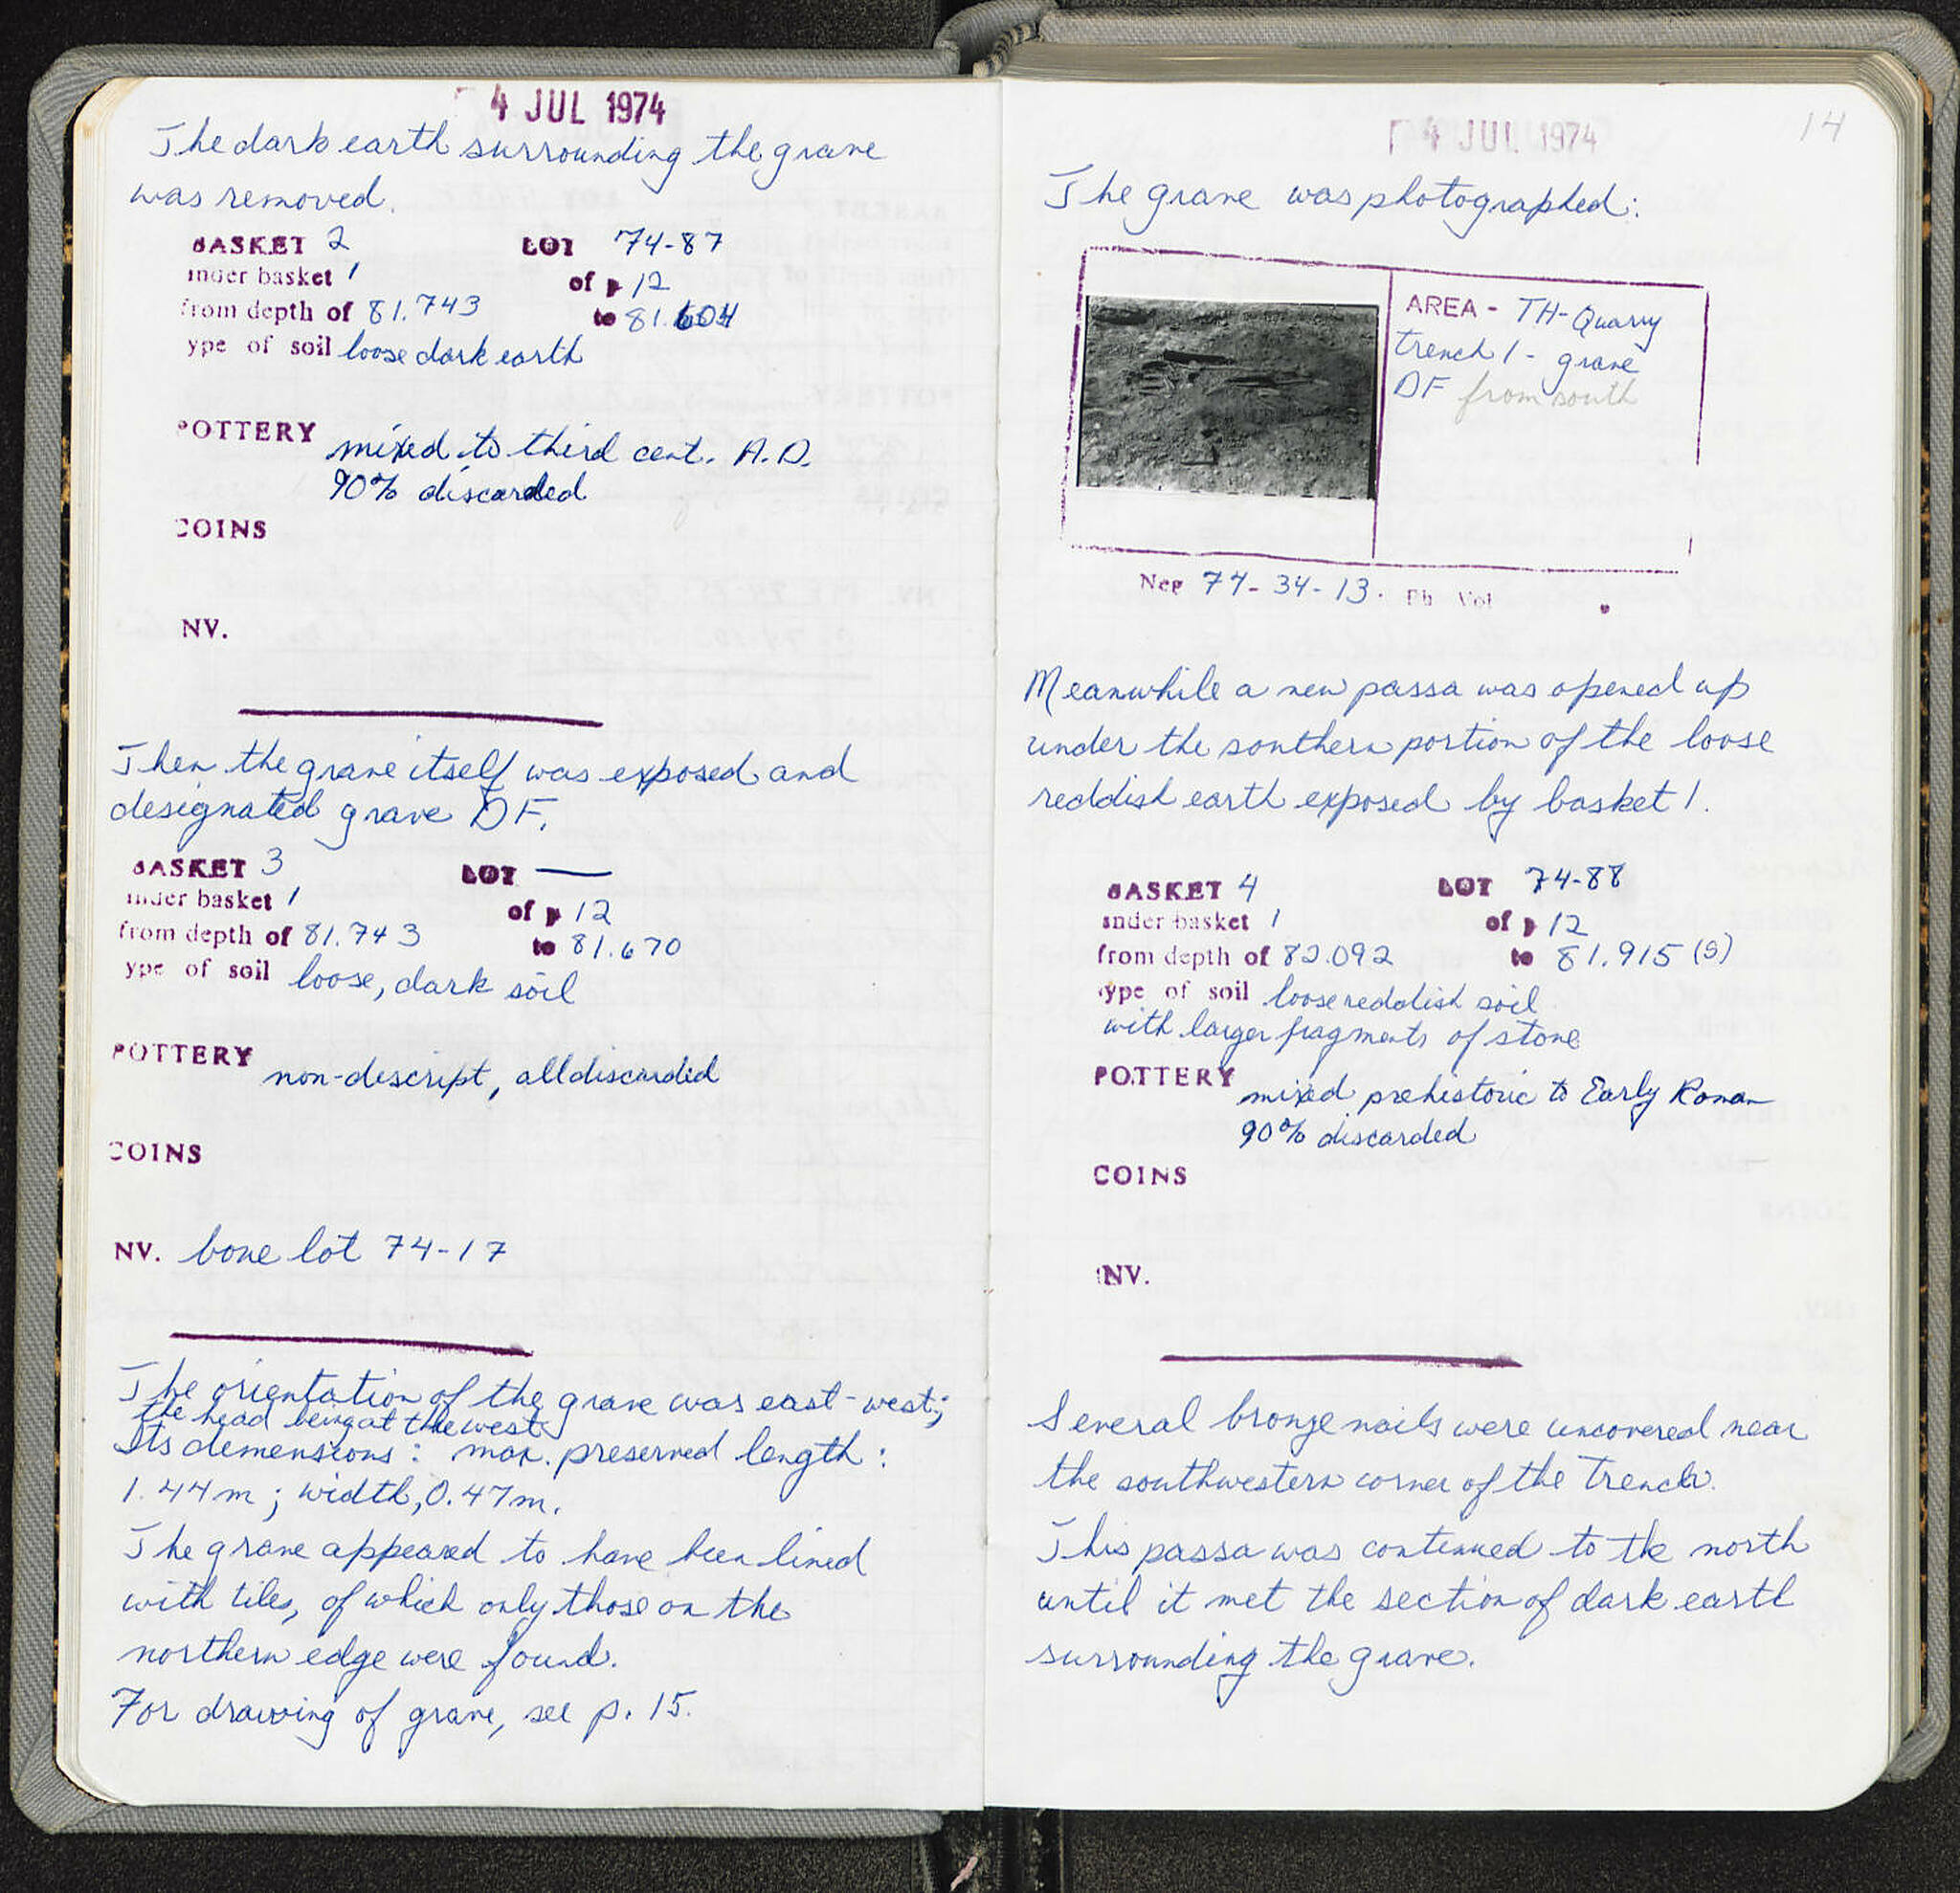 4 JUL 1974
The dark earth surrounding the grave
was removed.
BASKET 2 LOT 74-87
under basket 1 of p 12
from depth of 81.743 to 81.604
ype of soil loose dark earth
POTTERY mixed to third cent. A.D.
90% discarded
COINS
NV.
Then the grave itself was exposed and
designated grave DF.
BASKET 3 LOT —
under basket 1 of p 12
from depth of 81.743 to 81.670
ype of soil loose, dark soil
POTTERY non-descript, all discarded
COINS
NV. bone lot 74-17
The orientation of the grave was east-west;
the head being at the west
Its demensions: max. preserved length:
1.44m; width, 0.47m.
The grave appeared to have been lined
with tiles, of which only those on the
northern edge were found.
For drawing of grave, see p. 15.
14
4 JUL 1974
The grave was photographed:
AREA - TH-Quarry
trench 1 - grave
DF from south
Neg 74-34-13. Ph Vol
Meanwhile a new passa was opened up
under the southern portion of the loose
reddish earth exposed by basket 1.
BASKET 4 LOT 74-88
under basket 1 of p 12
from depth of 82.092 to 81.915 (S)
type of soil loose reddish soil
with larger fragments of stone
POTTERY mixed prehistoric to Early Roman
90% discarded
COINS
INV.
Several bronze nails were uncovered near
the southwestern corner of the trench.
This passa was continued to the north
until it met the section of dark earth
surrounding the grave.